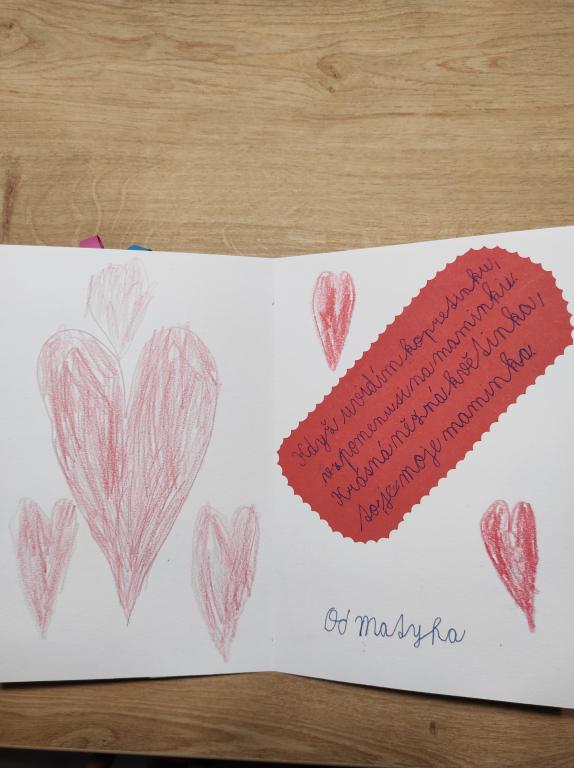 Když uvidím kopretinku,
vzpomenusi na maminku.
Krásná něžná květinka,
to je moje maminka.
Od Matyka